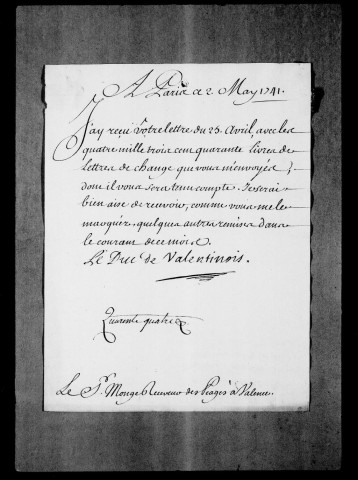 A Paris ce 2. May 1741.
J'ay reçu Votre lettre du 25. Avril, avec les
quatre mille trois cent quarante livres de
lettres de change que vous m'envoyés ;
dont il vous sera tenu compte. Je serai
bien aise de recevoir, comme vous me le
marquéz, quelques autres remises dans
le courant de ce mois.
Le Duc de Valentinois.
Quarente quatre
Le Sr. Monge Receveur des Peages à Valence.